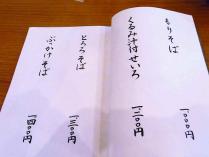 もりそば 一〇〇〇円
くるみ汁付せいろ 一二〇〇円
とろろそば 一三〇〇円
ぶっかけそば 一四〇〇円